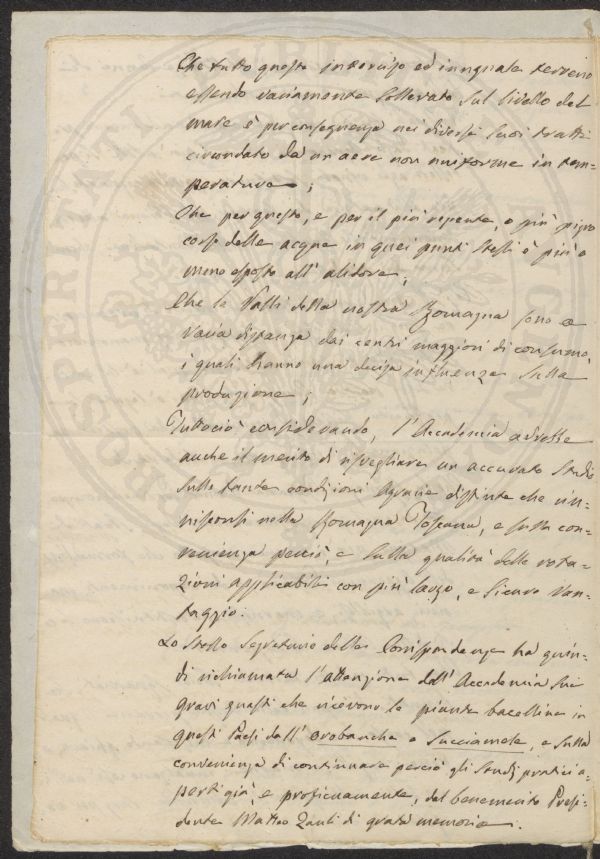 Che tutto questo interciso ed ineguale terreno
essendo variamente sollevato sul livello del
mare è per conseguenza nei diversi suoi tratti
circondato da un aere non uniforme in tem-
perature;
Che per questo, e per il più repente, o più pigro
corso delle acque in quei punti stessi è più o
meno esposto all' alidore;
Che le Valli della nostra Romagna sono a
varia distanza dai centri maggiori di consumo,
i quali hanno una decisa influenza sulla
produzione;
Tuttociò considerando, l'Accademia
anche il merito di risvegliare un accurato studio
sulle tante condizioni Agrarie distinte che rin-
vengonsi nella Romagna Toscana, e sulla con-
venienza perciò, e sulla qualità delle rota-
zioni applicabili con più largo, e sicuro van-
taggio.
Lo stesso Segretario delle Corrispondenze ha quin-
di richiamata l'attenzione dell' Accademia sui
gravi guasti che ricevono le piante baccelline in
questi Paesi dall' orobanche o Succiamele, e sulla
convenienza di continuare perciò gli studj pratici a-
perti già, e proficuamente, dal benemerito Presi-
dente Matteo Zauli di grata memoria.
PROSPERITATI PUBLICAE